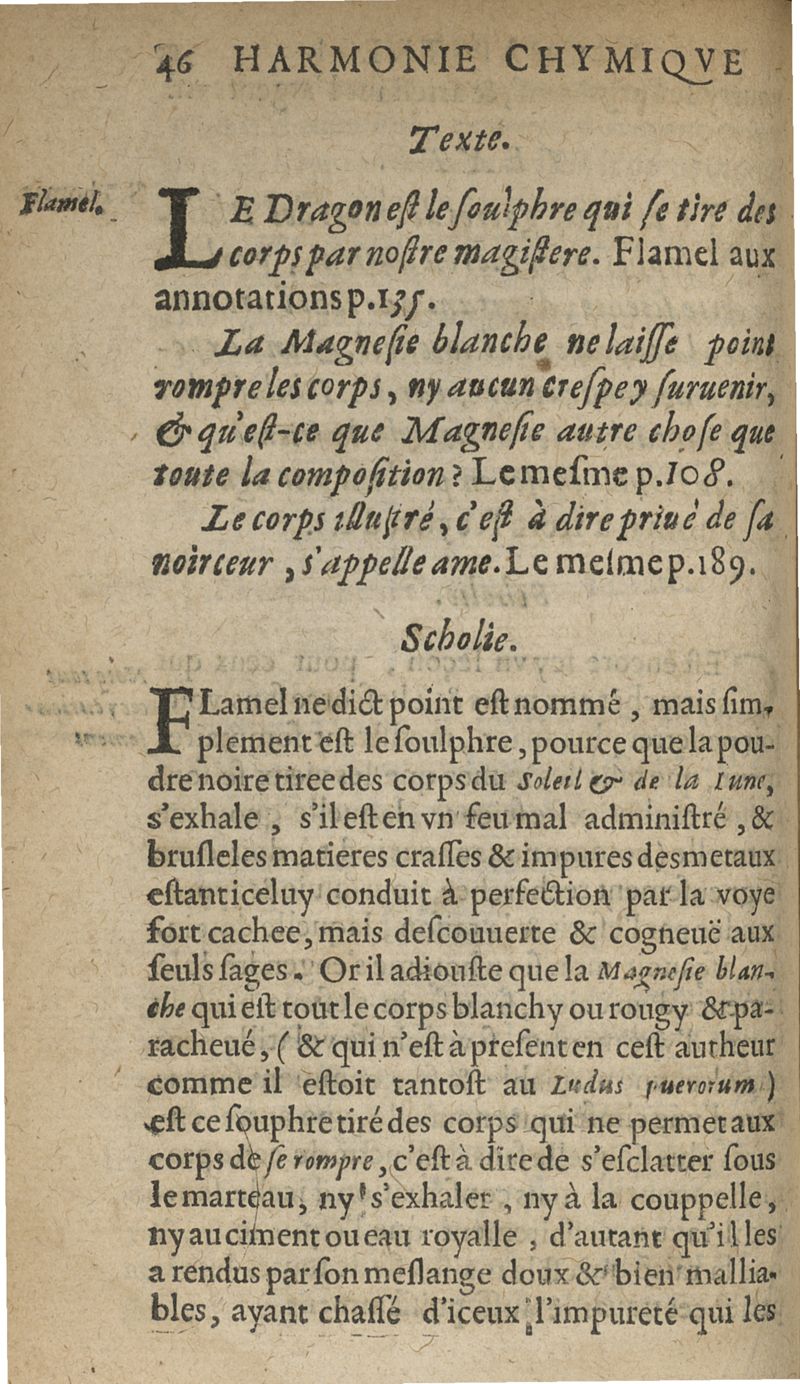 46 HARMONIE CHYMIQVE
Texte.
Flamel.
LE Dragon eſt le ſoulphre qui ſe tire des
corps par noſtre magiſtere. Flamel aux
annotations p.135.
La Magneſie blanche ne laiſſe point
rompre les corps, ny aucun creſpe y ſuruenir,
& qu'eſt-ce que Magneſie autre choſe que
toute la compoſition? Le meſme p.108.
Le corps illuſtré, c'eſt à dire priué de ſa
noirceur, s'appelle ame. Le meſme p.189.
Scholie.
FLamel ne dict point eſt nommé, mais ſim-
plement eſt le ſoulphre, pource que la pou-
dre noire tiree des corps du Soleil & de la Lune,
s'exhale, s'il eſt en vn feu mal adminiſtré, &
bruſle les matieres craſſes & impures des metaux
eſtant iceluy conduit à perfection par la voye
fort cachee, mais deſcouuerte & cogneuë aux
ſeuls ſages. Or il adiouſte que la Magneſie blan-
che qui eſt tout le corps blanchy ou rougy & pa-
racheué, (& qui n'eſt à preſent en ceſt autheur
comme il eſtoit tantoſt au Ludus puerorum)
eſt ce ſouphre tiré des corps qui ne permet aux
corps de ſe rompre, c'eſt à dire de s'eſclatter ſous
le marteau, ny s'exhaler, ny à la couppelle,
ny au ciment ou eau royalle, d'autant qu'il les
a rendus par ſon meſlange doux & bien mallia-
bles, ayant chaſſé d'iceux l'impureté qui les